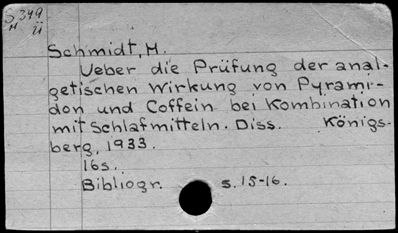 S 349
M Ü
Schmidt, M.
Ueber die Prüfung der anal-
getischen Wirkung von Pyrami-
don und Coffein bei Kombination
mit Schlafmitteln. Diss. Königs-
berg, 1933.
16s.
Bibliogr. s. 15-16.